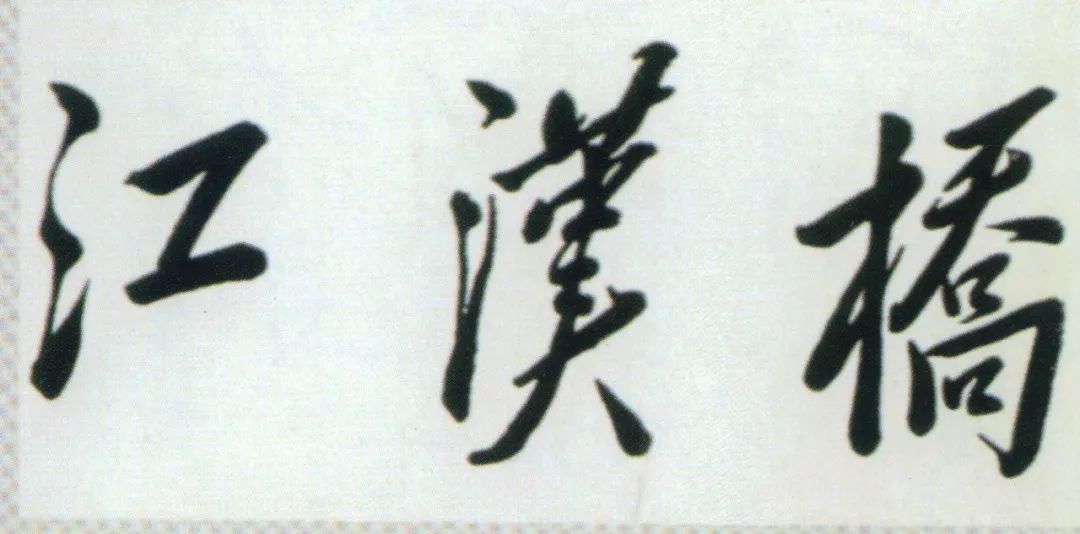 江漢橋